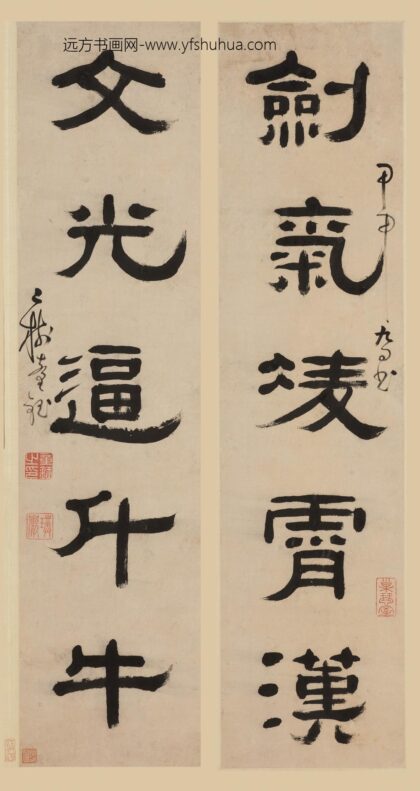 远方书画网-www.yfshuhua.com
劍氣凌霄漢
甲申
書
文光逼斗牛
二樹童鈺